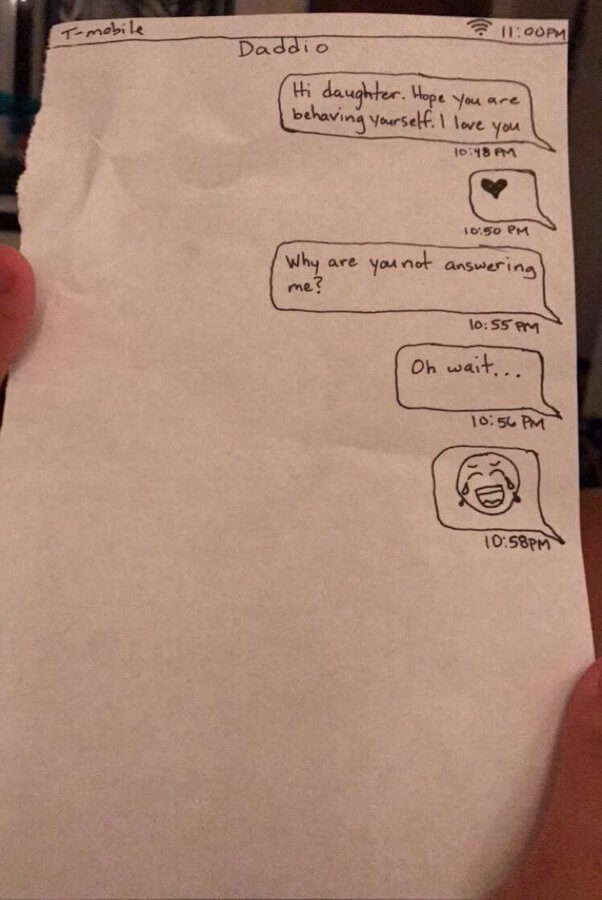 T-mobile 11:00PM
Daddio
Hi daughter. Hope you are
behaving yourself. I love you
10:48 PM
10:50 PM
Why are you not answering
me?
10:55 PM
Oh wait...
10:56 PM
10:58PM